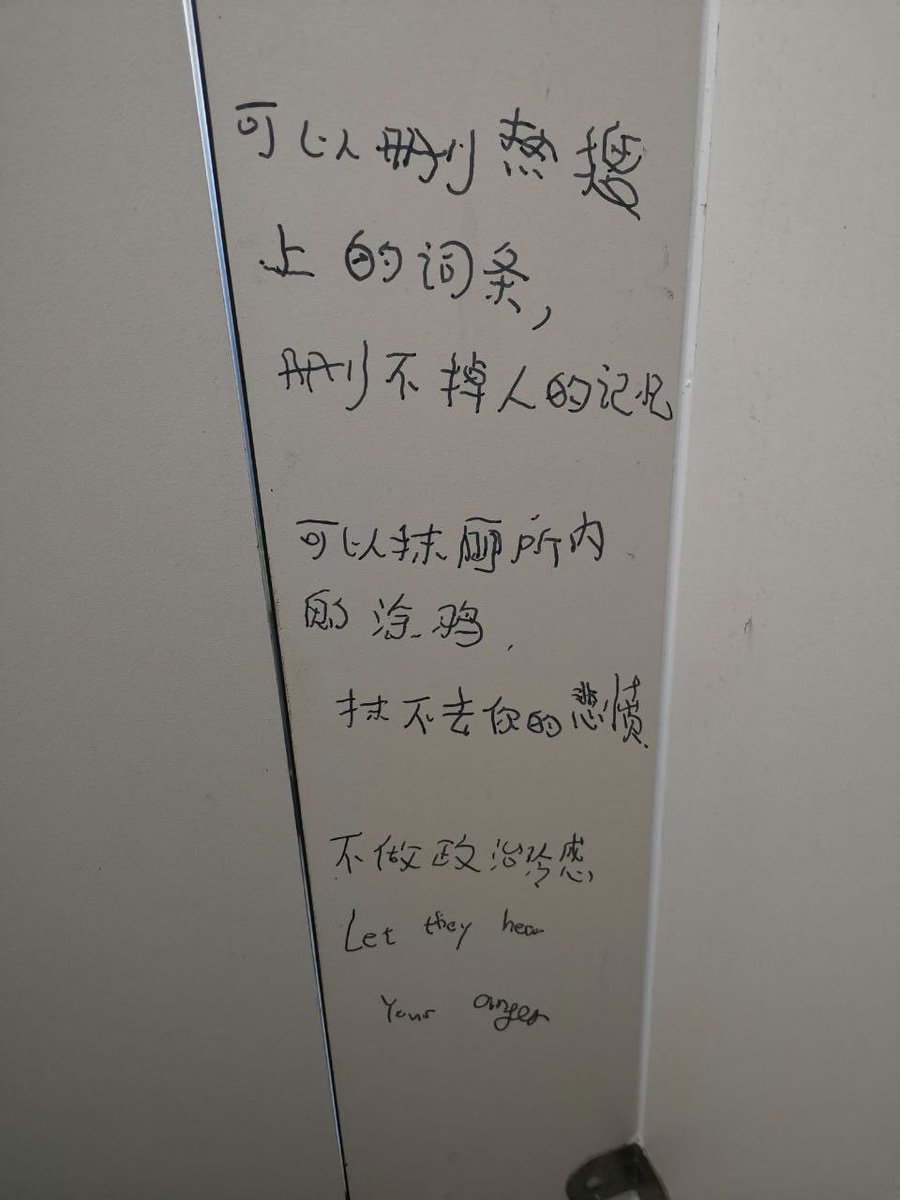 可以删热搜
上的词条，
删不掉人的记忆
可以抹厕所内
的涂鸦，
抹不去你的悲愤
不做政治冷感
Let they hear
Your anger